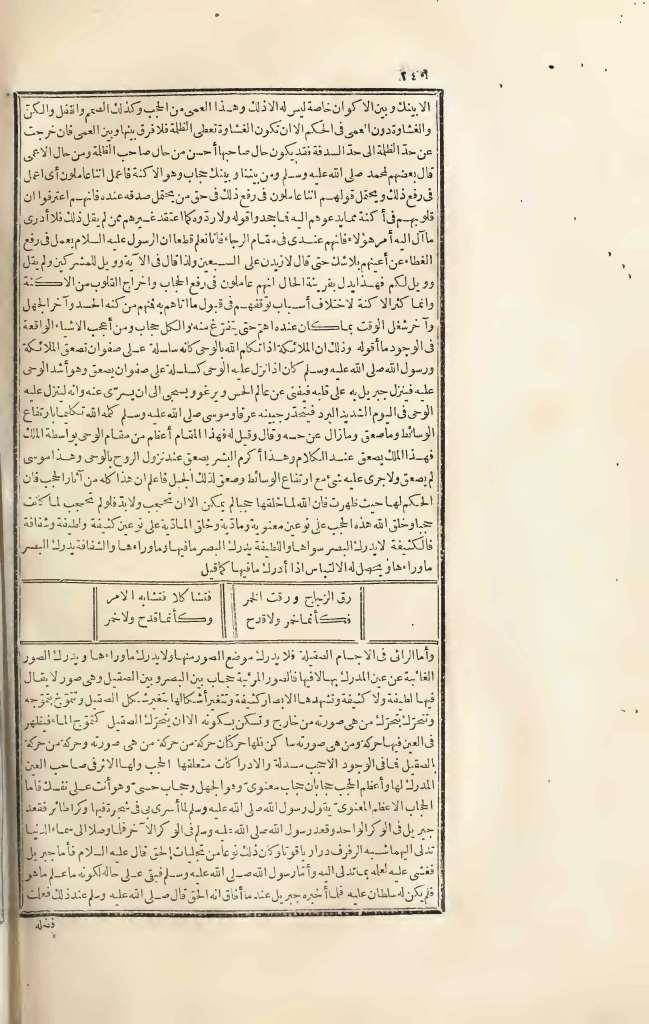 ٢٤٩
الا بينك وبين الاكوان خاصة ليس له الا ذلك وهذا العمى من الحجب وكذلك الصمم والقفل والكن
والغشاوة دون العمى فى الحكم الا ان تكون الغشاوة تعطى الظلمة فلا فرق بينها وبين العمى فان خرجت
عن حدّ الظلمة الى حدّ السدفة فقد يكون حال صاحبها أحسن من حال صاحب الظلمة ومن حال الاعمى
قال بعضهم لمحمد صلى الله عليه وسلم ومن بيننا وبينك حجاب وهو الاكنة فاعمل اننا عاملون أى اعمل
فى رفع ذلك ويحتمل قولهم اننا عاملون فى رفع ذلك فى حق من يحتمل صدقه عنده فانهم اعترفوا ان
قلوبهم فى أكنة مما يدعوهم اليه فما جحدوا قوله ولا ردّوه كما اعتقد غيرهم ممن لم يقل ذلك فلا أدرى
ما آل اليه أمر هؤلاء فانهم عندى فى مقام الرجاء فانا نعلم قطعا ان الرسول عليه السلام يعمل فى رفع
الغطاء عن أعينهم بلا شك حتى قال لازيدن على السبعين ولذا قال فى الآية وويل للمشركين ولم يقل
وويل لكم فهذا يدل بقرينة الحال انهم عاملون فى رفع الحجاب واخراج القلوب من الاكنة
وانما كثر الاكنة لاختلاف أسباب توقفهم فى قبول ما أتاهم به فنهم من كنه الحسد وآخر الجهل
وآخر شغل الوقت بما كان عنده أهمّ حتى يتفرّغ منه والكل حجاب ومن أعجب الاشياء الواقعة
فى الوجود ما أقوله وذلك ان الملائكة اذا تكلم الله بالوحى كانه سلسلة على صفوان تصعق الملائكة
ورسول الله صلى الله عليه وسلم كان اذا نزل عليه الوحى كسلسلة على صفوان يصعق وهو أشد الوحى
عليه فينزل جبريل به على قلبه فيفنى عن عالم الحس ويرغو ويسجى الى ان يسرّى عنه وانه لينزل عليه
الوحى فى اليوم الشديد البرد فيتحدّر جبينه عرقا وموسى صلى الله عليه وسلم كلمه الله تكليما بارتفاع
الوسائط وما صعق وما زال عن حسه وقال وقيل له فهذا المقام أعظم من مقام الوحى بواسطة الملك
فهذا الملك يصعق عند الكلام وهذا أكرم البشر يصعق عند نزول الروح بالوحى وهذا موسى
لم يصعق ولا جرى عليه شئ مع ارتفاع الوسائط وصعق لدك الجبل فاعلم ان هذا كله من آثار الحجب فان
الحكم لها حيث ظهرت فان الله لما خلقها حجبا لم يمكن الا ان تحجب ولا بد فلو لم تحجب لما كانت
حجبا وخلق الله هذه الحجب على نوعين معنوية ومادّية وخلق المادّية على نوعين كثيفة ولطيفة وشفافة
فالكثيفة لا يدرك البصر سواها واللطيفة يدرك البصر ما فيها وما وراءها والشفافة يدرك البصر
ما وراءها ويحصل له الالتباس اذا أدرك ما فيها كما قيل
رق الزجاج ورقت الخمر فتشاكلا فتشابه الامر
فكأنما خمر ولا قدح وكأنما قدح ولا خمر
وأما المرائى فى الاجسام الصقيلة فلا يدرك موضع الصور منها ولا يدرك ما وراءها ويدرك الصور
الغائبة عن عين المدرك بها لا فيها فالصور المرئية حجاب بين البصر وبين الصقيل وهى صور لا يقال
فيها لطيفة ولا كثيفة وتشهدها الابصار كثيفة وتتغير أشكالها بتغير شكل الصقيل وتتموّج بتموّجه
وتتحرّك بتحرّك من هى صورته من خارج وتسكن بسكونه الا ان يتحرّك الصقيل كتموّج الماء فيظهر
فى العين فيها حركة ومن هى صورته ساكن فلها حركتان حركة من حركة من هى صورته وحركة من حركة
الصقيل فما فى الوجود الا حجب مسدلة والادراكات متعلقها الحجب ولها الاثر فى صاحب العين
المدرك لها وأعظم الحجب حجابان حجاب معنوى وهو الجهل وحجاب حسى وهو أنت على نفسك فاما
الحجاب الاعظم المعنوى يقول رسول الله صلى الله عليه وسلم لما أسرى بى فى شجرة فيها وكرا طائر فقعد
جبريل فى الوكر الواحد وقعد رسول الله صلى الله عليه وسلم فى الوكر الآخر فلما وصلا الى سماء الدنيا
تدلى اليهما شبه الرفرف درا وياقوتا وكان ذلك نوعا من تجليات الحق قال عليه السلام فأما جبريل
فغشى عليه لعلمه بما تدلى اليه وأما رسول الله صلى الله عليه وسلم فبقى على حاله لكونه ما علم ما هو
فلم يكن له سلطان عليه فلما أخبره جبريل عند ما أفاق انه الحق قال صلى الله عليه وسلم عند ذلك فعلمت
فضله